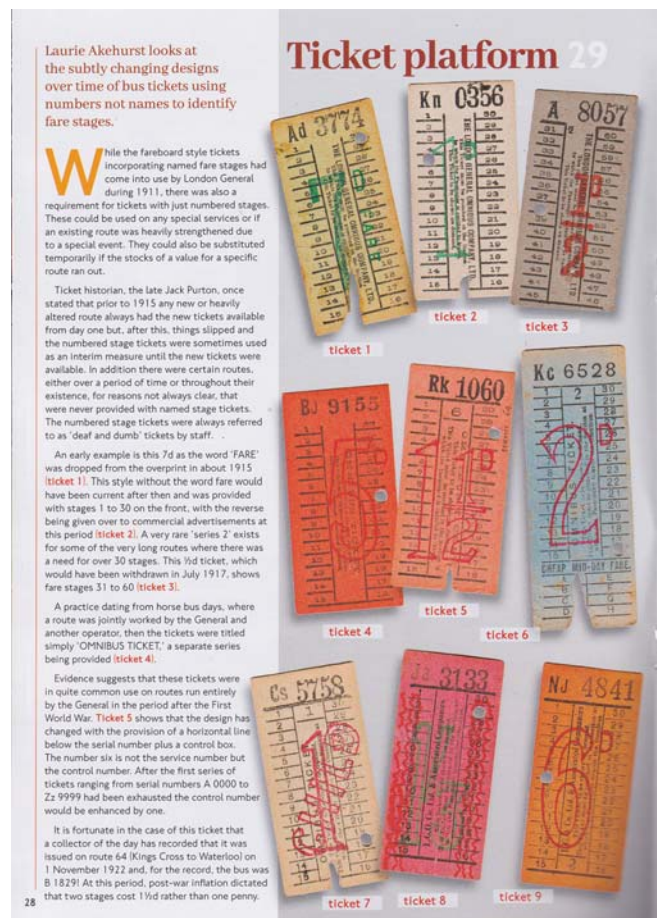 Laurie Akehurst looks at
the subtly changing designs
over time of bus tickets using
numbers not names to identify
fare stages.
While the fareboard style tickets
incorporating named fare stages had
come into use by London General
during 1911, there was also a
requirement for tickets with just numbered stages.
These could be used on any special services or if
an existing route was heavily strengthened due
to a special event. They could also be substituted
temporarily if the stocks of a value for a specific
route ran out.
Ticket historian, the late Jack Purton, once
stated that prior to 1915 any new or heavily
altered route always had the new tickets available
from day one but, after this, things slipped and
the numbered stage tickets were sometimes used
as an interim measure until the new tickets were
available. In addition there were certain routes,
either over a period of time or throughout their
existence, for reasons not always clear, that
were never provided with named stage tickets.
The numbered stage tickets were always referred
to as 'deaf and dumb' tickets by staff.
An early example is this 7d as the word 'FARE'
was dropped from the overprint in about 1915
(ticket 1). This style without the word fare would
have been current after then and was provided
with stages 1 to 30 on the front, with the reverse
being given over to commercial advertisements at
this period (ticket 2). A very rare 'series 2' exists
for some of the very long routes where there was
a need for over 30 stages. This ½d ticket, which
would have been withdrawn in July 1917, shows
fare stages 31 to 60 (ticket 3).
A practice dating from horse bus days, where
a route was jointly worked by the General and
another operator, then the tickets were titled
simply 'OMNIBUS TICKET,' a separate series
being provided (ticket 4).
Evidence suggests that these tickets were
in quite common use on routes run entirely
by the General in the period after the First
World War. Ticket 5 shows that the design has
changed with the provision of a horizontal line
below the serial number plus a control box.
The number six is not the service number but
the control number. After the first series of
tickets ranging from serial numbers A 0000 to
Zz 9999 had been exhausted the control number
would be enhanced by one.
It is fortunate in the case of this ticket that
a collector of the day has recorded that it was
issued on route 64 (Kings Cross to Waterloo) on
1 November 1922 and, for the record, the bus was
B 1829! At this period, post-war inflation dictated
that two stages cost 1½d rather than one penny.
28
Ticket platform 29
Ad 3774
THE LONDON GENERAL OMNIBUS COMPANY, LTD.
ticket 1
Kn 0356
THE LONDON GENERAL OMNIBUS COMPANY LTD
ticket 2
A 8057
ticket 3
BJ 9155
ticket 4
Rk 1060
6
ticket 5
Kc 6528
2
CHEAP MID-DAY FARE
ticket 6
Cs 5758
1
ticket 7
3133
ticket 8
NJ 4841
ticket 9